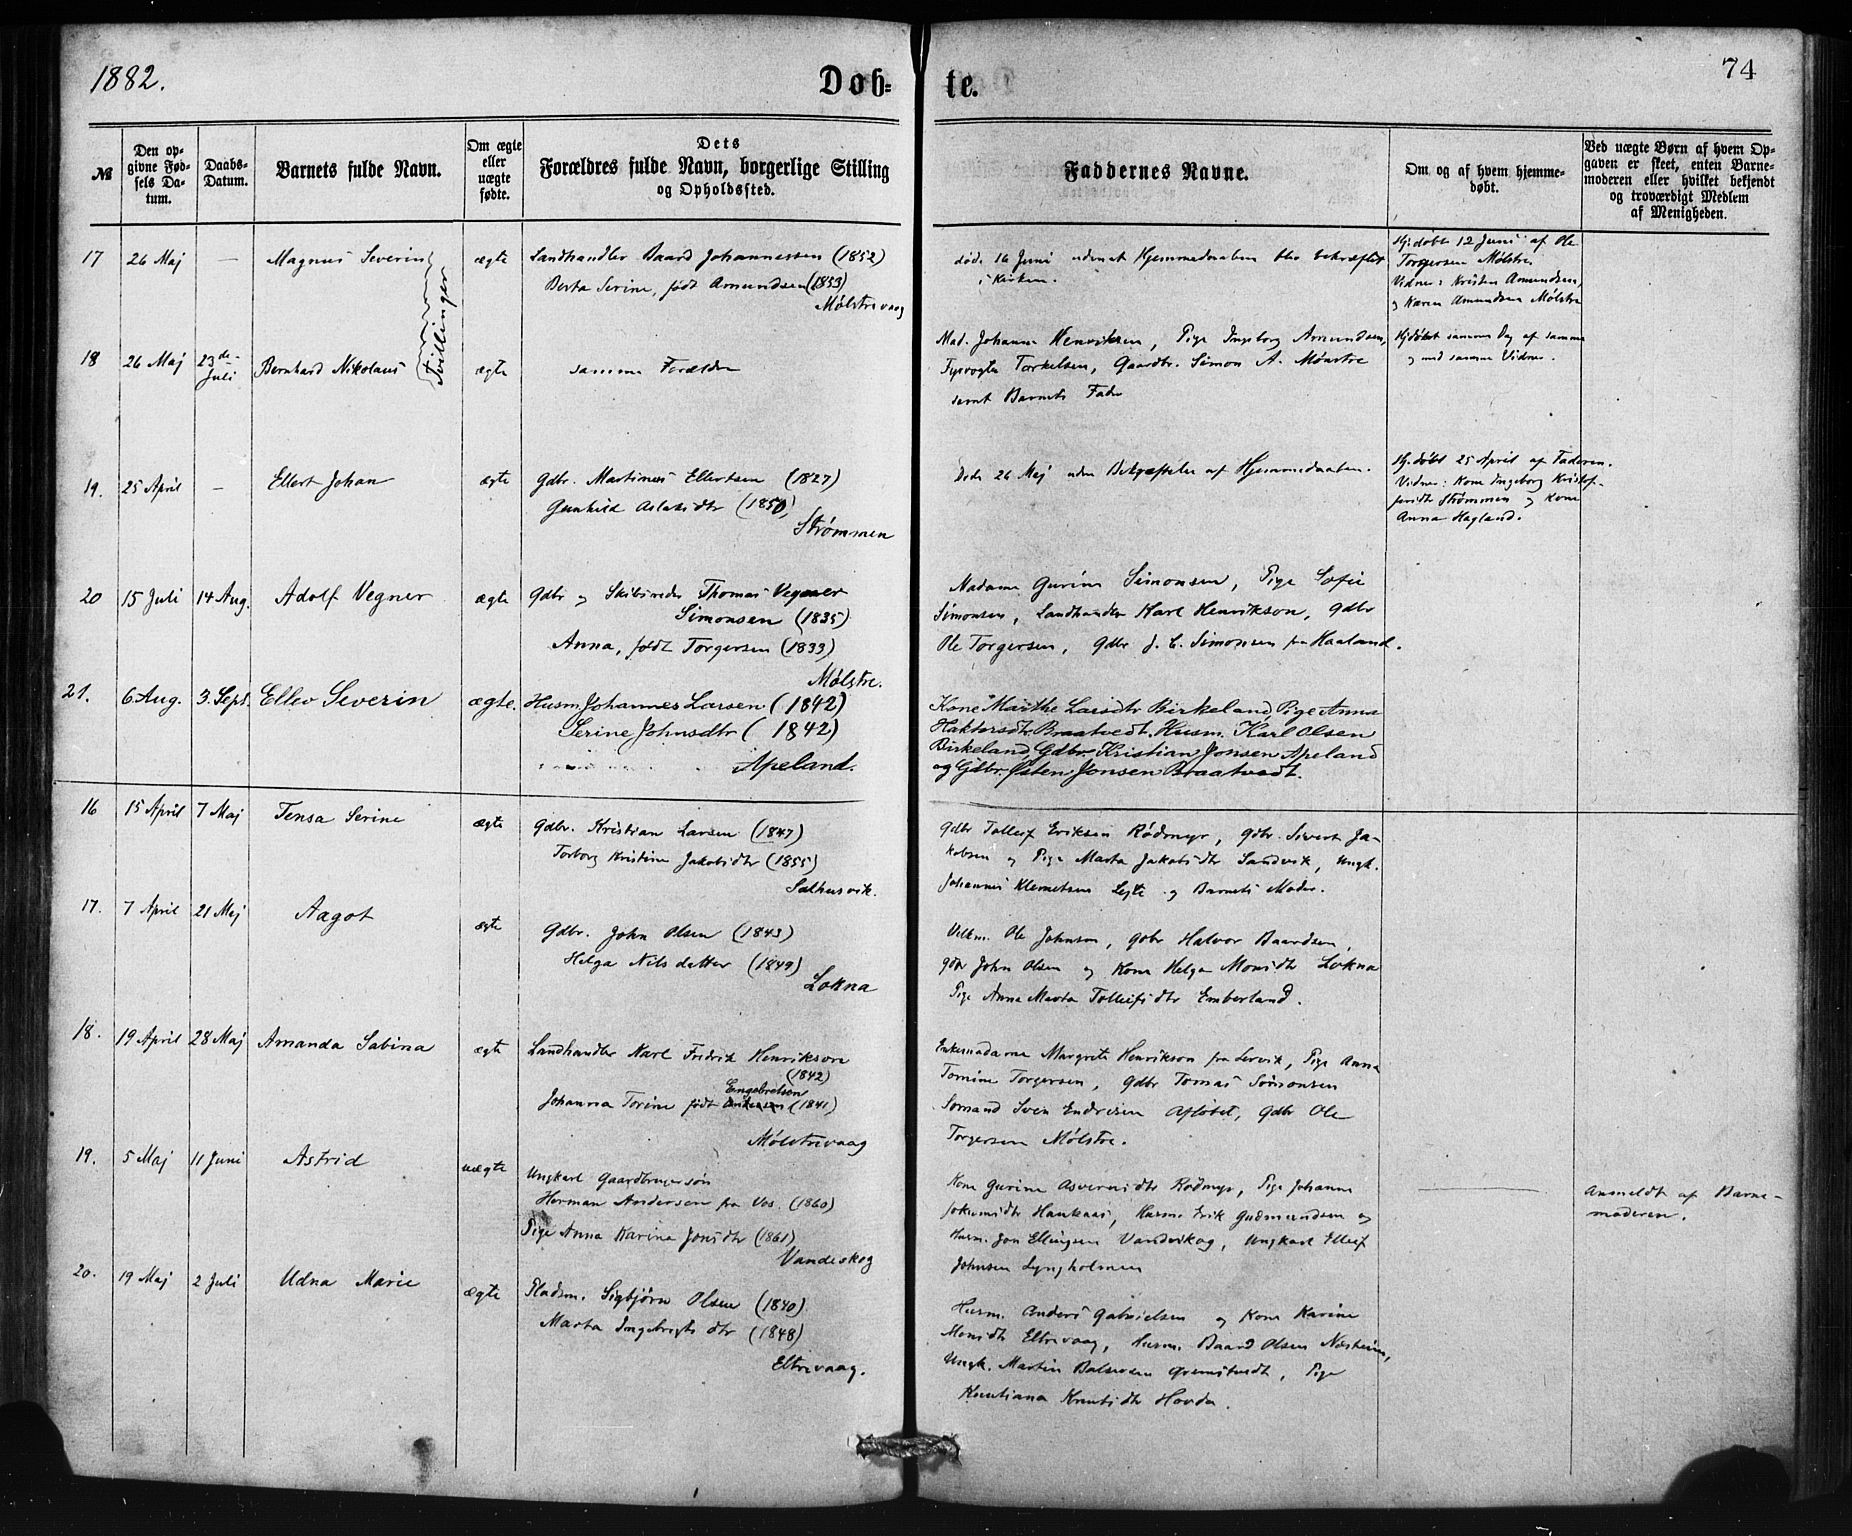 1882.
Døb-
te.
74
№
Den op-
givne Fød-
sels Da-
tum.
Daabs-
Datum.
Barnets fulde Navn.
Om ægte
eller
uægte
fødte.
Dets
Forældres fulde Navn, borgerlige Stilling
og Opholdssted.
Faddernes Navne.
Om og af hvem hjemme-
døbt.
Ved uægte Børn af hvem Op-
gaven er skeet, enten Barne-
moderen eller hvilket bekjendt
og troværdigt Medlem
af Menigheden.
17 26 Maj — Magnus Severin ægte
Landhandler Baard Johannessen (1852)
Berta Serine, født Amundsen (1853)
Mølstrevaag
døde 16 Juni uden at Hjemmedaaben blev bekræftet
i Kirken.
Hj. døbt 12 Juni af Ole
Torgersen Mølstre
Vidner: Kristen Amundsen,
og Karen Amundsen Mølstre
Tvillinger
18 26 Maj 23de Juli Bernhard Nikolaus ægte
samme Forældre
Mad. Johanne Henriksen, Pige Ingeborg Amundsen,
Fyrvogter Torkelsen, Gaardbr. Simon A. Mønstre
samt Barnets Fader
Hjdøbt samme Dag af samme
og med samme Vidner.
19. 25 April — Ellert Johan ægte
Gdbr. Martinus Ellertsen (1827)
Gunhild Aslaksdtr (1850)
Strømmen
Døde 26 Maj uden Bekræftelse af Hjemmedaaben.
Hj. døbt 25 April af Faderen.
Vidner: Kone Ingeborg Kristof-
fersdtr Strømmen og Kone
Anna Hagland.
20 15 Juli 14 Aug. Adolf Vegner ægte
Gdbr og Skibsreder Thomas Vegner
Simonsen (1835)
Anna, født Torgersen (1833)
Mølstre.
Madame Gurine Simonsen, Pige Sofie
Simonsen, Landhandler Karl Henrikson, Gdbr
Ole Torgersen, Gdbr J. C. Simonsen fra Haaland.
21. 6 Aug. 3. Sept. Ellev Severin ægte.
Husm. Johannes Larsen (1842)
Serine Johnsdtr (1842)
Apeland.
Kone Marthe Larsdtr Birkeland, Pige Anna
Haktorsdtr Braatvedt, Husm. Karl Olsen
Birkeland, Gdbr. Kristian Jonsen Apeland
og Gdbr. Østen Jonsen Braatvedt.
16 15 April 7 Maj Tensa Serine ægte
Gdbr. Kristian Larsen (1847)
Torborg Kristine Jakobsdtr (1855)
Salhusvik.
Gdbr Tollef Eriksen Rødmyr, Gdbr. Sivert Ja-
kobsen og Pige Marta Jakobsdtr Sandvik, Ungk.
Johannes Klemetsen Lejte og Barnets Moder.
17. 7 April 21 Maj Aagot ægte
Gdbr. John Olsen (1843)
Helga Nilsdatter (1849)
Lokna
Velkm. Ole Johnson, Gdbr Halvor Baardsen,
Gdbr John Olsen og Kone Helga Monsdtr Lokna
Pige Anna Marta Tollefsdtr Emberland.
18. 19 April 28 Maj Amanda Sabina ægte
Landhandler Karl Fredrik Henrikson
(1842)
Engebretsen
Johanna Torine født (1841)
Mølstrevaag
Enkemadame Margrete Henrikson fra Lervik, Pige Anna
Tomine Torgersen, Gdbr Tomas Simonsen
Sømand Sven Endresen Apløbet, Gdbr Ole
Torgersen Mølstre.
19. 5 Maj 11 Juni Astrid uægte
Ungkarl Gaardbrugersøn
Herman Anderson fra Vos. (1860)
Pige Anna Karina Jonsdtr (1861)
Vandeskog
Kone Gurine Asversdtr Rødmyr, Pige Johanne
Jokumsdtr Haukaas, Husm. Erik Gudmundsen og
Husm. Jon Ellingsen Vandvikog, Ungkarl Ellef
Johnsen Lyngholmen
Anmeldt af Barne-
moderen.
20. 19 Maj 2 Juli Udna Marie ægte
Pladsm. Sigbjørn Olsen (1840)
Marta Ingebrigtsdtr (1848)
Eltrevaag.
Husm. Anders Gabrielsen og Kone Karine
Monsdtr Eltrevaag, Husm. Baard Olsen Næsheim,
Ungk. Martin Balsersen Grønstvedt, Pige
Kristiana Knutsdtr Hovda.